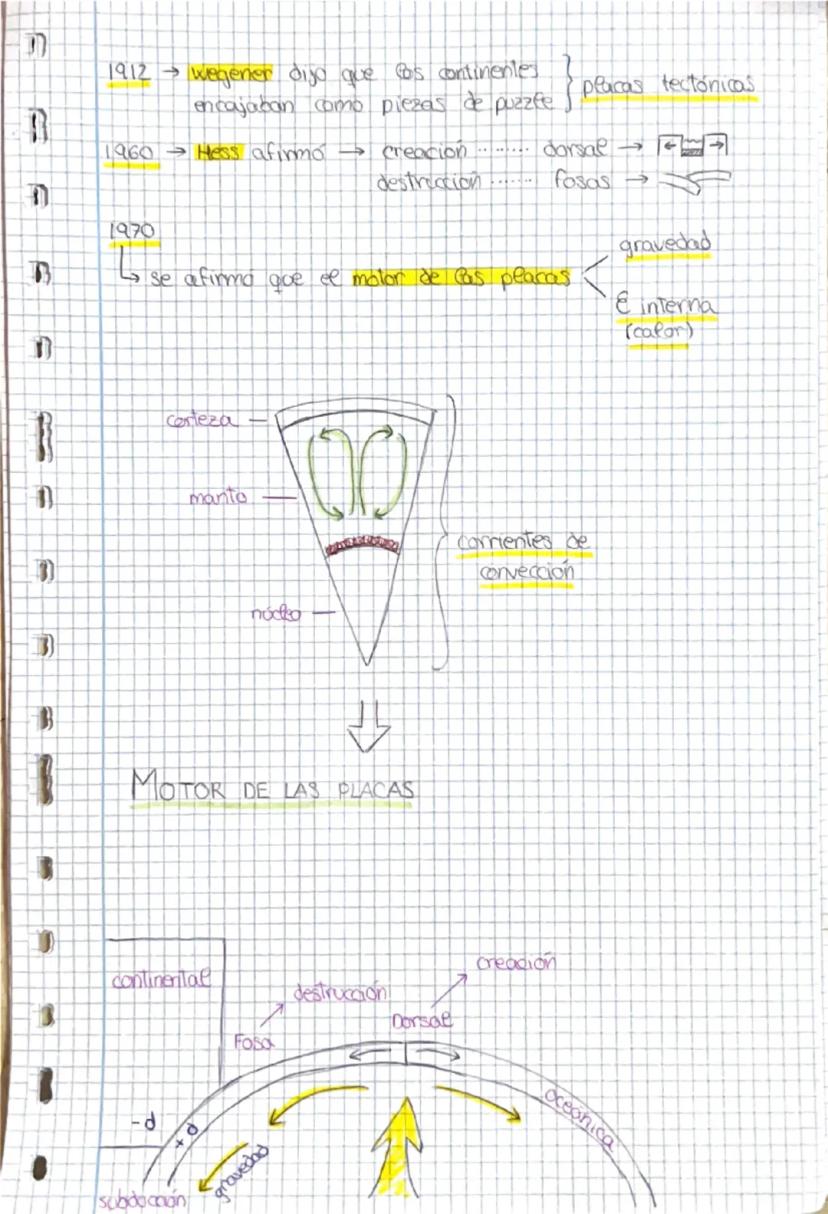 1912 → Wegener dijo que los continentes
encajaban como piezas de puzzle } placas tectónicas
1960 → Hess afirmó → creación ........ dorsal →
destrucción ....... fosas →
1970
↳ se afirmó que el motor de las placas
gravedad
E interna
(calor)
corteza
manto
núcleo
corrientes de
convección
MOTOR DE LAS PLACAS
continental
creación
destrucción
Dorsal
Fosa
oceánica
-d
+d
gravedad
subducción